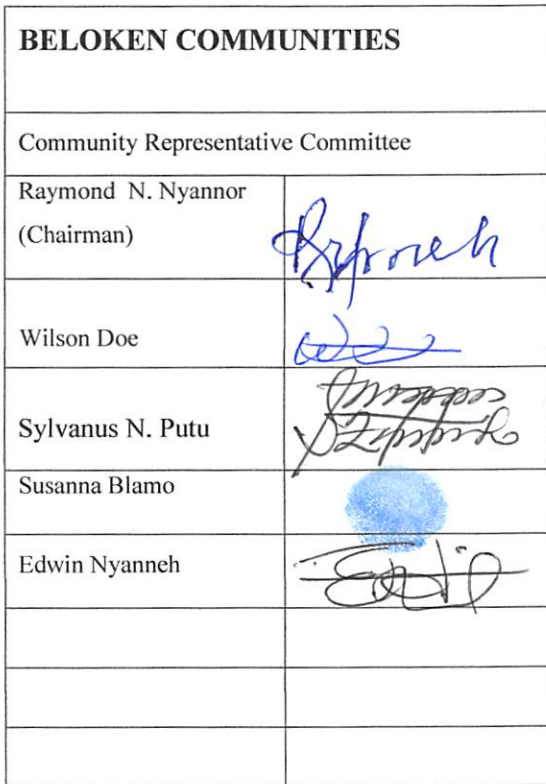 BELOKEN COMMUNITIES
Community Representative Committee
Raymond N. Nyannor
(Chairman)
Wilson Doe
Sylvanus N. Putu
Susanna Blamo
Edwin Nyanneh